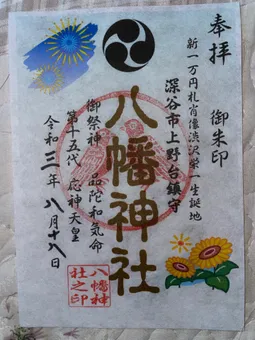 奉拝
御朱印
新一万円札肖像渋沢栄一生誕地
深谷市上野台鎮守
八幡神社
御祭神 品陀和気命
第十五代 応神天皇
令和三年八月十八日
八幡神
社之印